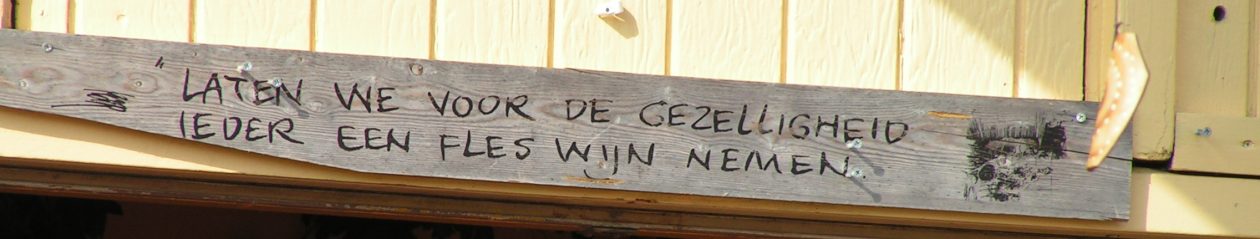 "LATEN WE VOOR DE GEZELLIGHEID
IEDER EEN FLES WIJN NEMEN